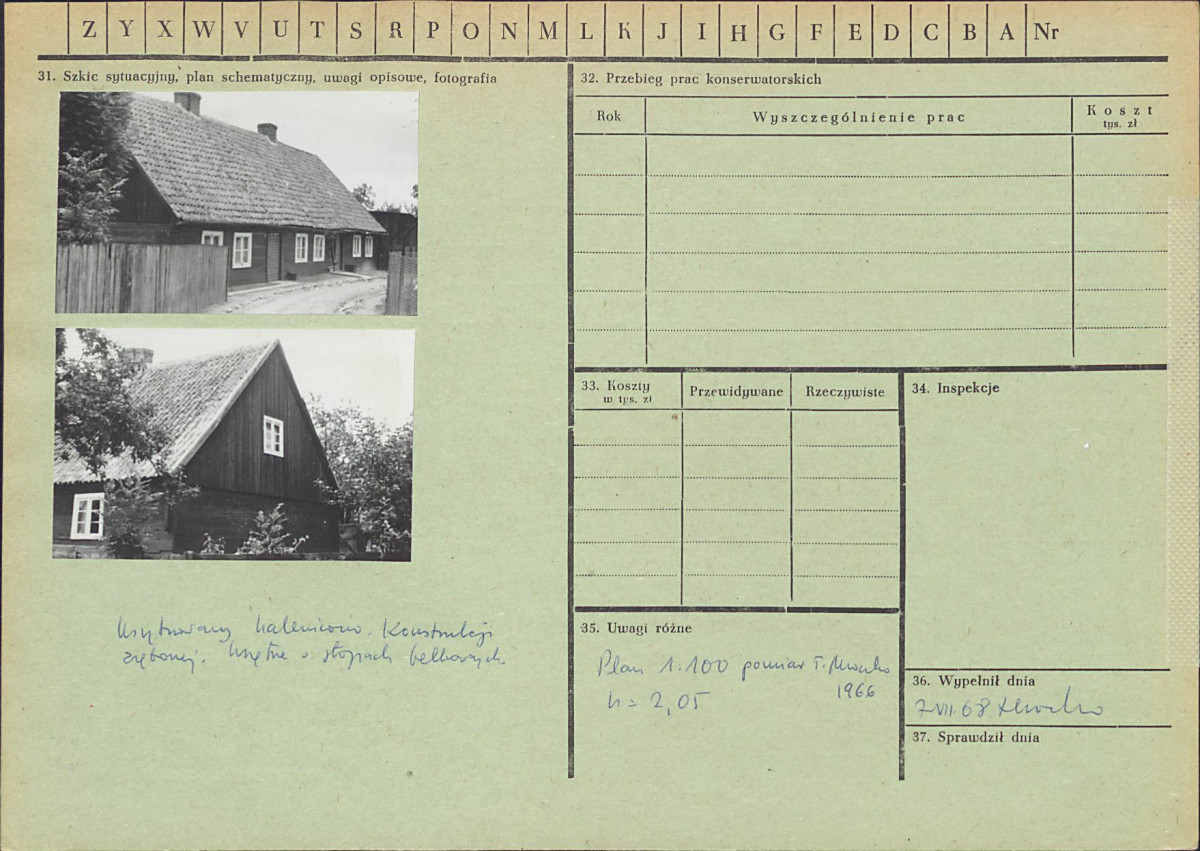 Z Y X W V U T S R P O N M L K J I H G F E D C B A Nr
31. Szkic sytuacyjny, plan schematyczny, uwagi opisowe, fotografia
Usytuowany kalenicowo. Konstrukcji
zrębowej. Wnętrze o stropach belkowych
32. Przebieg prac konserwatorskich
Rok Wyszczególnienie prac Koszt
tys. zł
33. Koszty Przewidywane Rzeczywiste
w tys. zł
34. Inspekcje
35. Uwagi różne
Plan 1:100 pomiar T.
1966
h = 2,05
36. Wypełnił dnia
7 VII 68
37. Sprawdził dnia